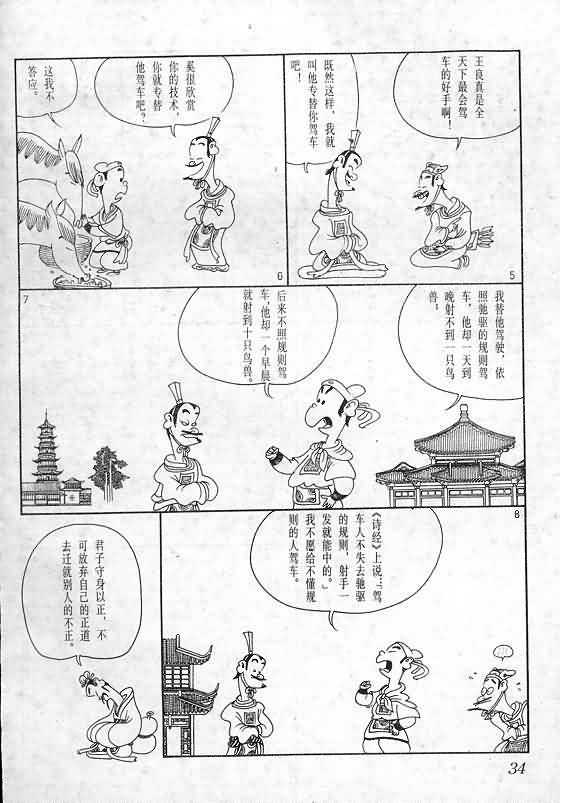 王良真是全
天下最会驾
车的好手啊！
既然这样，我就
叫他专替你驾车
吧！
5
奚很欣赏
你的技术，
你就专替
他驾车吧？
这我不
答应。
6
我替他驾驶，依
照驰驱的规则驾
车，他却一天到
晚射不到一只鸟
兽。
后来不照规则驾
车，他却一个早晨
就射到十只鸟兽。
7
《诗经》上说：「驾
车人不失去驰驱
的规则，射手一
发就能中的。」
我不愿给不懂规
则的人驾车。
8
君子守身以正，不
可放弃自己的正道
去迁就别人的不正。
34